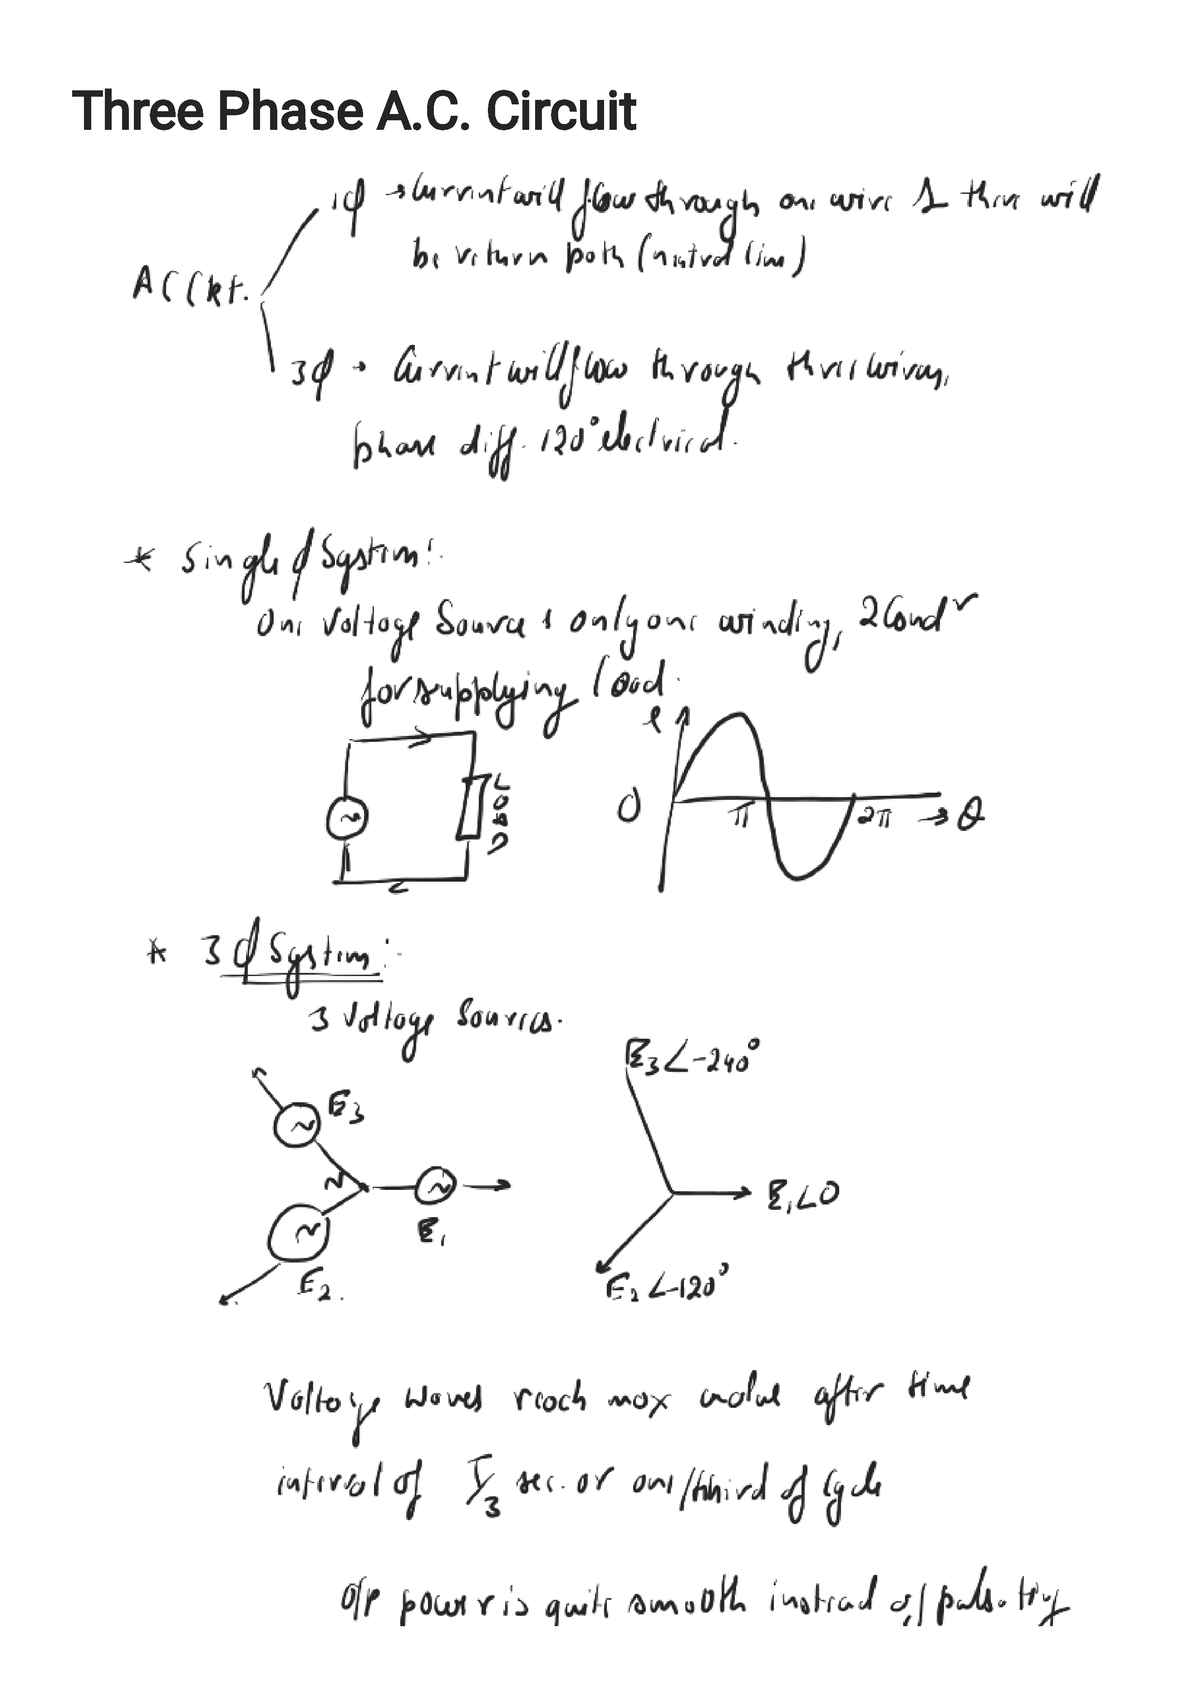 Three Phase A.C. Circuit
1ϕ → Current will flow through one wire & there will
be return path (neutral line)
AC Ckt.
3ϕ → Current will flow through three wires,
phase diff. 120° electrical.
* Single ϕ System:
One Voltage Source & only one winding, 2 Condr
for supplying load.
e
LOAD
0 π 2π → θ
* 3ϕ System:
3 Voltage Sources.
E3∠-240°
E3
N
E1
E1∠0
E2
E2∠-120°
Voltage waves reach max value after time
interval of T/3 sec. or one/third of cycle
O/P power is quite smooth instead of pulsating